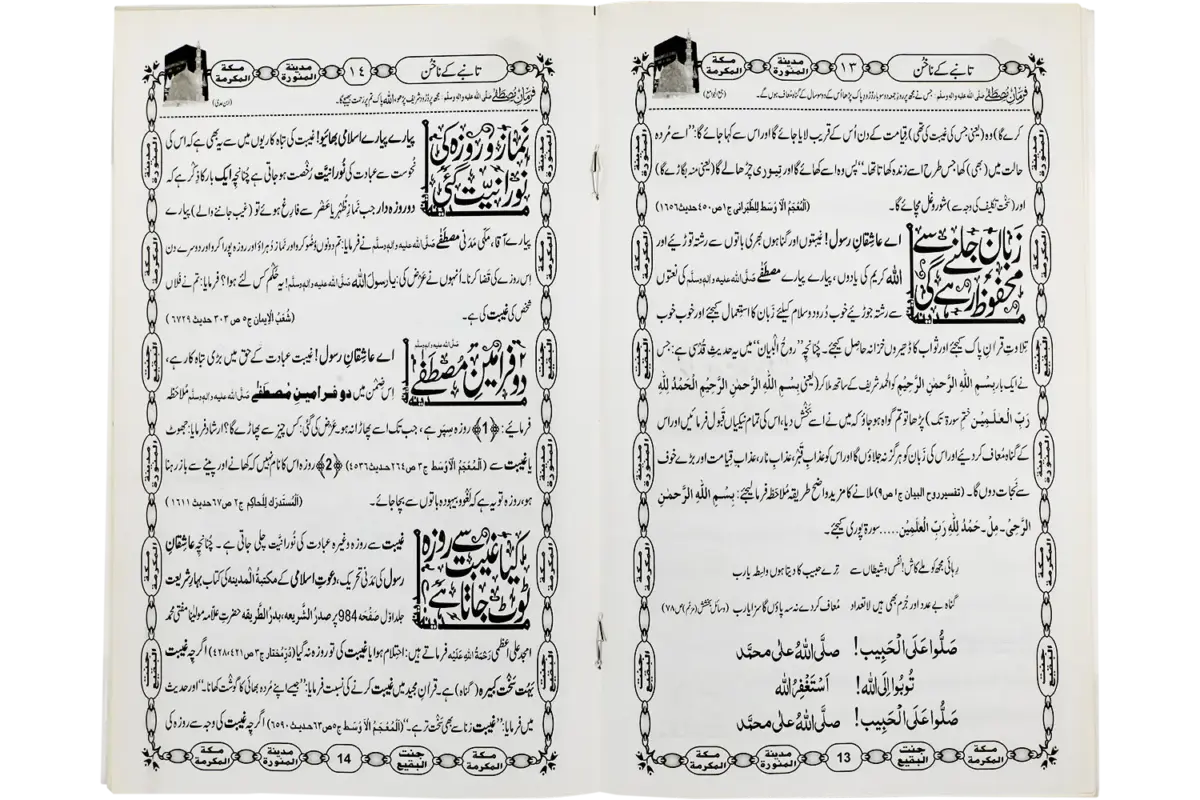 مكة المكرمة مدينة المنورة ١٣ تانبے کے ناخُن
فرمانِ مُصطَفٰے صَلَّى اللهُ عليه واله وسلَّم: جس نے مجھ پر روزِ جمعہ دو سو بار دُرُودِ پاک پڑھا اُس کے دو سو سال کے گناہ مُعاف ہوں گے۔
کرے گا) وہ (یعنی جس کی غیبت کی تھی) قیامت کے دن اُس کے قریب لایا جائے گا اور اس سے کہا جائے گا: ”اسے مُردہ
حالت میں (بھی) کھا، جس طرح اسے زندہ کھاتا تھا۔“ پس وہ اسے کھائے گا اور تیوری چڑھا لے گا (یعنی منہ بگاڑے گا)
اور (سخت تکلیف کی وجہ سے) شور و غُل مچائے گا۔ (اَلْمُعْجَمُ الْاَ وْسَط لِلطَّبَرانی ج۱ ص۴۵۰ حدیث۱۶۵۶)
زَبان جلنے سے
محفوظ رہے گی
اے عاشِقانِ رسول! غیبتوں اور گناہوں بھری باتوں سے رشتہ توڑیئے اور
اللہ کریم کی یادوں، پیارے پیارے مصطَفٰے صَلَّى اللهُ عليه واله وسلَّم کی نعتوں
سے رشتہ جوڑیئے خوب دُرود و سلام کیلئے زَبان کا استعمال کیجئے اور خوب خوب
تلاوتِ قرانِ پاک کیجئے اور ثواب کا ڈھیروں خزانہ حاصِل کیجئے۔ چُنانچِہ ”روحُ الْبیان“ میں یہ حدیثِ قُدسی ہے: جس
نے ایک بار بِسْمِ اللّٰهِ الرَّحْمٰنِ الرَّحِيْمِ کو الحمد شریف کے ساتھ ملا کر (یعنی بِسْمِ اللّٰهِ الرَّحْمٰنِ الرَّحِيْمِ الْحَمْدُ لِلّٰهِ
رَبِّ الْعٰلَمِيْنَ ختمِ سورۃ تک) پڑھا تو تم گواہ ہو جاؤ کہ میں نے اسے بَخْش دیا، اس کی تمام نیکیاں قَبول فرمائیں اور اس
کے گناہ مُعاف کر دیئے اور اس کی زَبان کو ہرگز نہ جلاؤں گا اور اس کو عذابِ قَبْر، عذابِ نار، عذابِ قِیامت اور بڑے خوف
سے نَجات دوں گا۔ (تفسیر روح البیان ج۱ ص۹) ملانے کا مزید واضِح طریقہ مُلاحَظہ فرما لیجئے: بِسْمِ اللّٰهِ الرَّحْمٰنِ
الرَّحِيْ۔ مِلْ۔ حَمْدُ لِلّٰهِ رَبِّ الْعٰلَمِيْنَ..... سورۃ پوری کیجئے۔
رِہائی مجھ کو ملے کاش! نفس و شیطاں سے ترے حبیب کا دیتا ہوں واسِطہ یا رب
گناہ بے عدد اور جُرم بھی ہیں لاتعداد مُعاف کر دے نہ سہ پاؤں گا سزا یا رب (وسائلِ بخشش (مرمّم) ص۷۸)
صَلُّوا عَلَى الْحَبِيب! صلَّى اللهُ على محمَّد
تُوبُوا اِلَى الله! اَسْتَغْفِرُ الله
صَلُّوا عَلَى الْحَبِيب! صلَّى اللهُ على محمَّد
مكة المكرمة مدينة المنورة 13 جنت البقيع مكة المكرمة
مكة المكرمة مدينة المنورة ١٤ تانبے کے ناخُن
فرمانِ مُصطَفٰے صَلَّى اللهُ عليه واله وسلَّم: مجھ پر دُرُود شریف پڑھو، اللہ پاک تم پر رَحمت بھیجے گا۔ (ابن عدی)
نَماز و روزہ کی
نورانیّت گئی
پیارے پیارے اسلامی بھائیو! غیبت کی تباہ کاریوں میں سے یہ بھی ہے کہ اس کی
نُحوست سے عبادت کی نُورانیَّت رُخصت ہو جاتی ہے چُنانچِہ ایک بار کا ذِکر ہے کہ
دو روزہ دار جب نَمازِ ظُہر یا عَصْر سے فارِغ ہوئے تو (غیب جاننے والے) پیارے
پیارے آقا، مکّی مَدَنی مصطَفٰے صَلَّى اللهُ عليه واله وسلَّم نے فرمایا: تم دونوں وُضو کرو اور نَماز دُہراؤ اور روزہ پورا کرو اور دوسرے دن
اِس روزے کی قضا کرنا۔ اُنہوں نے عَرْض کی: یا رسولَ اللہ صَلَّى اللهُ عليه واله وسلَّم! یہ حُکم کس لئے ہوا؟ فرمایا: تم نے فُلاں
شخص کی غیبت کی ہے۔ (شُعَبُ الْاِیمان ج۵ ص ۳۰۳ حدیث ۶۷۲۹)
۲ دو فرامینِ مُصطَفٰے
صَلَّى اللهُ عليه واله وسلَّم
اے عاشِقانِ رسول! غیبت عبادت کے حق میں بڑی تباہ کار ہے،
اِس ضِمْن میں دو فرامینِ مُصطَفٰے صَلَّى اللهُ عليه واله وسلَّم مُلاحَظہ
فرمائیے: ﴿1﴾ روزہ سِپَر ہے، جب تک اسے پھاڑا نہ ہو۔ عَرْض کی گئی: کس چیز سے پھاڑے گا؟ ارشاد فرمایا: جھوٹ
یا غیبت سے (اَلْمُعْجَمُ الْاَوْسَط ج۳ ص۲۶۴ حدیث۴۵۳۶) ﴿2﴾ روزہ اس کا نام نہیں کہ کھانے اور پینے سے باز رہنا
ہو، روزہ تو یہ ہے کہ لَغْو و بیہودہ باتوں سے بچا جائے۔ (اَلْمُسْتَدرَک لِلْحاکِم ج۲ ص۶۷ حدیث ۱۶۱۱)
کیا غیبت سے روزہ
ٹوٹ جاتا ہے
غیبت سے روزہ وغیرہ عبادت کی نُورانیَّت چلی جاتی ہے۔ چُنانچِہ عاشِقانِ
رسول کی مَدَنی تحریک، دعوتِ اسلامی کے مکتبۃُ الْمدینہ کی کتاب بہارِ شریعت
جلد اوّل صَفْحَہ 984 پر صدرُ الشَّریعہ، بدرُ الطَّریقہ حضرتِ علّامہ مولیٰنا مفتی محمد
امجد علی اعظمی رَحْمَةُ اللهِ عَلَيْه فرماتے ہیں: اِحتِلام ہوا یا غیبت کی تو روزہ نہ گیا (دُرِّمُختار ج۳ ص۴۲۱، ۴۲۸) اگرچِہ غیبت
بَہُت سَخْت کبیرہ (گناہ) ہے۔ قرانِ مجید میں غیبت کرنے کی نسبت فرمایا: ”جیسے اپنے مُردہ بھائی کا گوشت کھانا۔“ اور حدیث
میں فرمایا: ”غیبت زِنا سے بھی سخت تر ہے۔“ (اَلْمُعْجَمُ الْاَ وْسَط ج۵ ص۶۳ حدیث ۶۵۹۰) اگرچِہ غیبت کی وجہ سے روزہ کی
مكة المكرمة مدينة المنورة 14 جنت البقيع مكة المكرمة